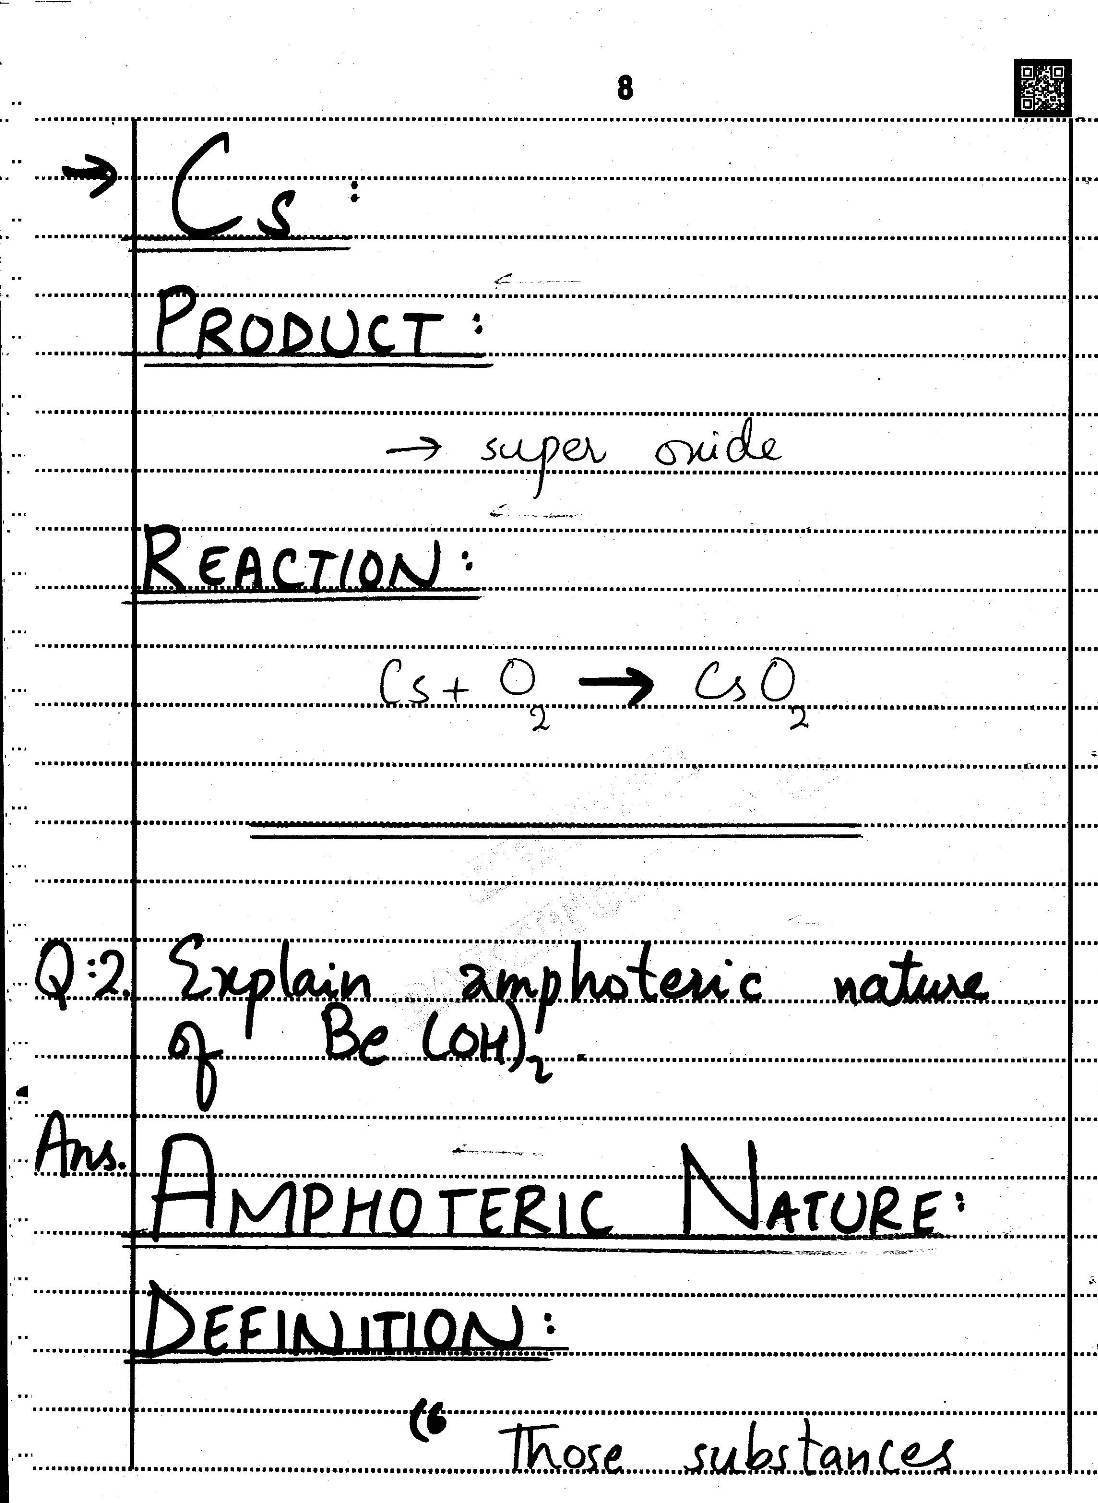 8
→ Cs :
PRODUCT :
→ super oxide
REACTION :
Cs + O₂ → CsO₂
Q:2. Explain amphoteric nature
of Be (OH)₂.
Ans. AMPHOTERIC NATURE:
DEFINITION :
“ Those substances